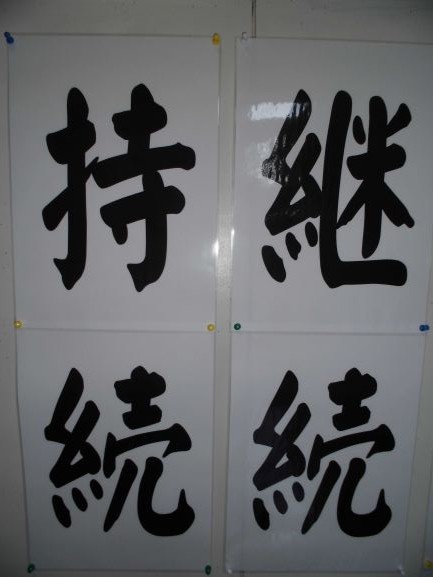 継続
持続